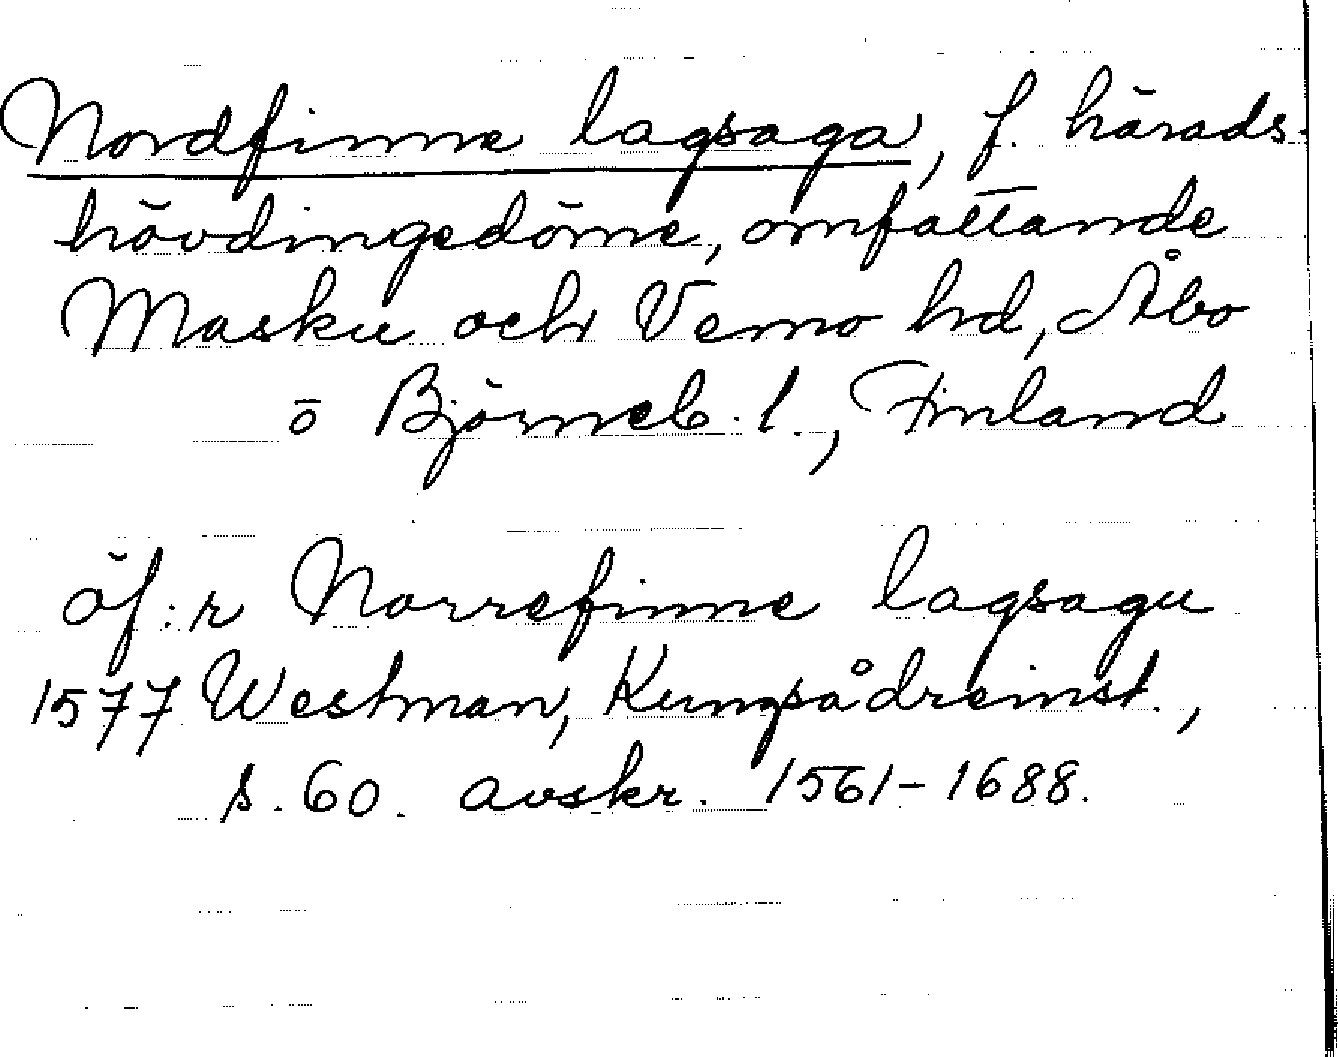 Nordfinne lagsaga, f. härads-
hövdingedöme, omfattande
Masku och Vemo hd, Åbo
o Björneb. l., Finland
öf:r Norrefinne lagsagu
1577 Westman, Kungsådreinst.,
s. 60. avskr. 1561-1688.